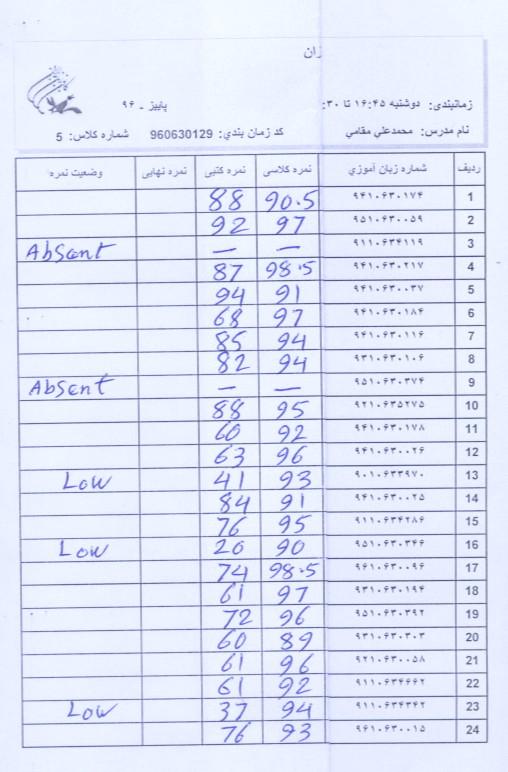 زان
زمانبندی: دوشنبه ۱۶:۴۵ تا ۳۰: پاییز ـ ۹۶
نام مدرس: محمدعلي مقامي کد زمان بندي: 960630129 شماره کلاس: 5
ردیف شماره زبان آموزي نمره کلاسی نمره کتبی نمره نهایی وضعیت نمره
1 ۹۴۱۰۶۳۰۱۷۴ 90.5 88
2 ۹۵۱۰۶۳۰۰۵۹ 97 92
3 ۹۱۱۰۶۳۴۱۱۹ — — Absent
4 ۹۴۱۰۶۳۰۲۱۷ 98.5 87
5 ۹۴۱۰۶۳۰۰۳۷ 91 94
6 ۹۴۱۰۶۳۰۱۸۴ 97 68
7 ۹۴۱۰۶۳۰۱۱۶ 94 85
8 ۹۳۱۰۶۳۰۱۰۶ 94 82
9 ۹۵۱۰۶۳۰۳۷۴ — — Absent
10 ۹۲۱۰۶۳۵۲۷۵ 95 88
11 ۹۴۱۰۶۳۰۱۷۸ 92 60
12 ۹۴۱۰۶۳۰۰۲۶ 96 63
13 ۹۰۱۰۶۳۳۹۷۰ 93 41 Low
14 ۹۴۱۰۶۳۰۰۲۵ 91 84
15 ۹۱۱۰۶۳۴۲۸۶ 95 76
16 ۹۵۱۰۶۳۰۳۴۶ 90 20 Low
17 ۹۶۱۰۶۳۰۰۹۶ 98.5 74
18 ۹۳۱۰۶۳۰۱۹۴ 97 61
19 ۹۵۱۰۶۳۰۳۹۲ 96 72
20 ۹۳۱۰۶۳۰۳۰۳ 89 60
21 ۹۲۱۰۶۳۰۰۵۸ 96 61
22 ۹۱۱۰۶۳۴۶۶۲ 92 61
23 ۹۱۱۰۶۳۴۳۴۲ 94 37 Low
24 ۹۶۱۰۶۳۰۰۱۵ 93 76